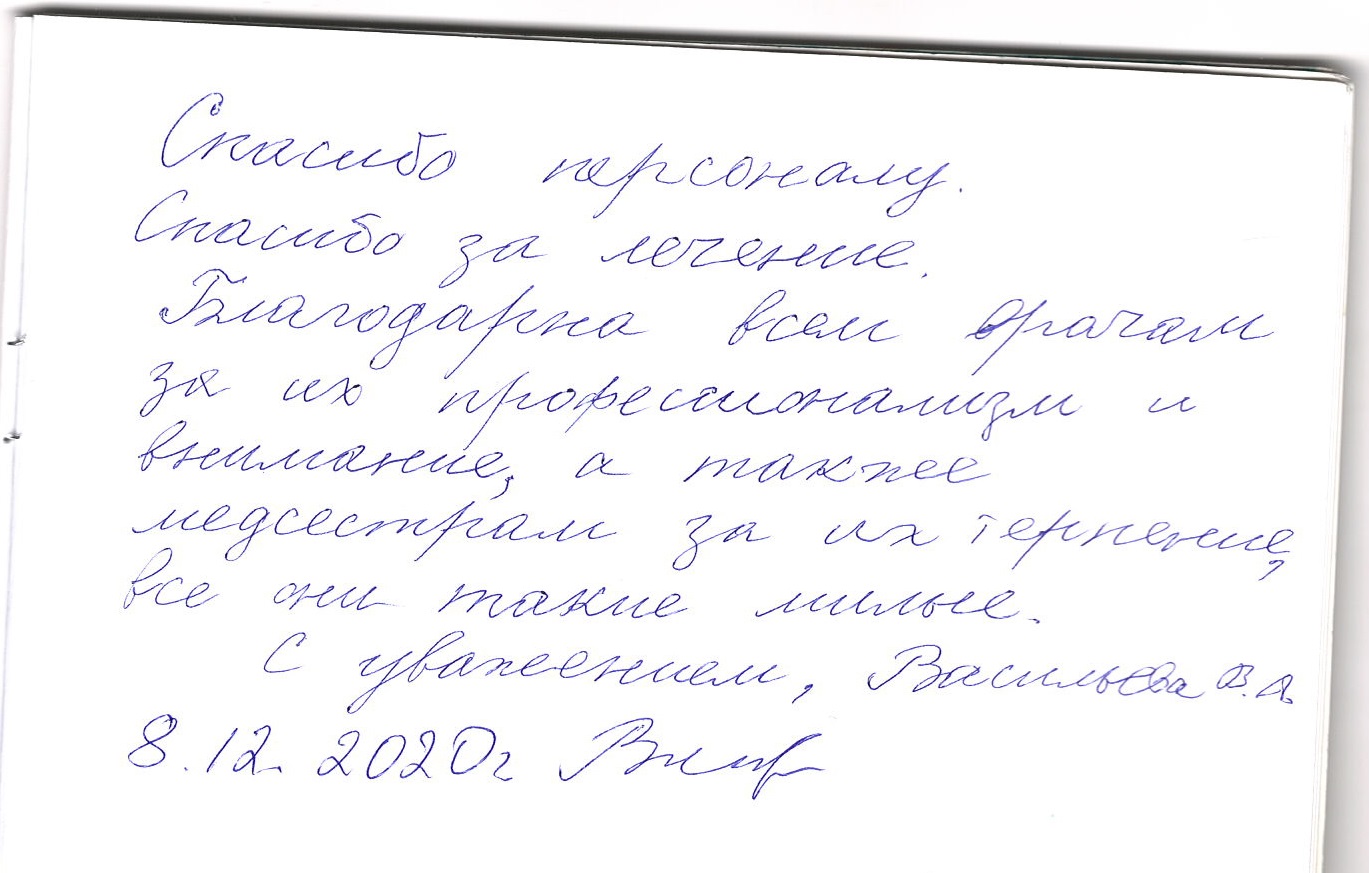 Спасибо персоналу.
Спасибо за лечение.
Благодарна всем врачам
за их профессионализм и
внимание, а также
медсестрам за их терпение,
все они такие милые.
С уважением, Васильева В.А.
8.12.2020г